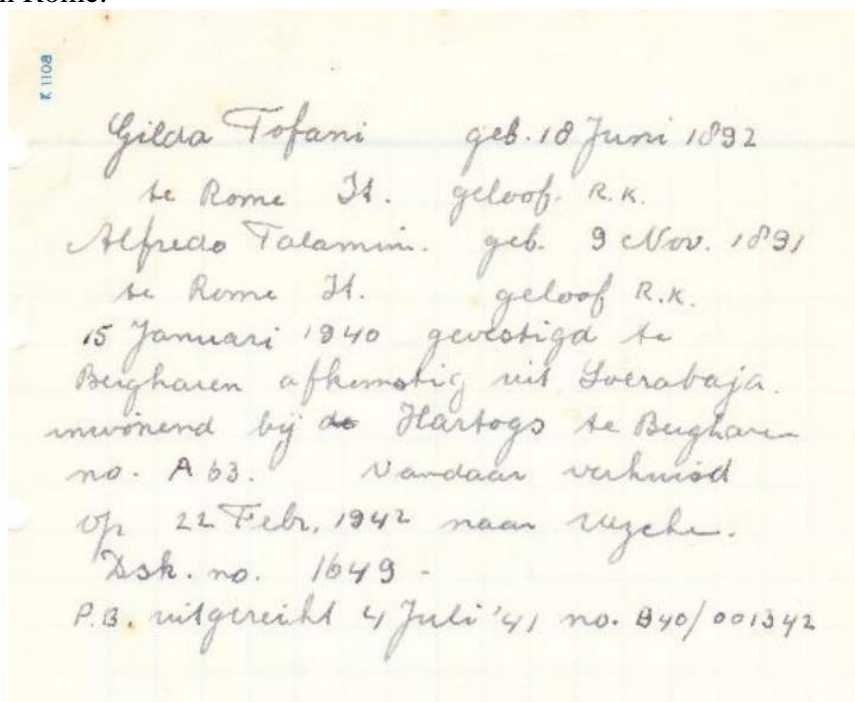 in Rome.
K 1108
Gilda Tofani geb. 18 Juni 1892
te Rome It. geloof. R.K.
Alfredo Talamini. geb. 9 Nov. 1891
te Rome It. geloof R.K.
15 Januari 1940 gevestigd te
Bergharen afkomstig uit Soerabaja.
inwonend bij de Hartogs te Bergharen
no. A 63. Vandaar verhuisd
op 22 Febr. 1942 naar
Dsk. no. 1649 -
P.B. uitgereikt 4 Juli '41 no. B40/001342